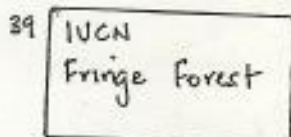 39
IUCN
Fringe Forest